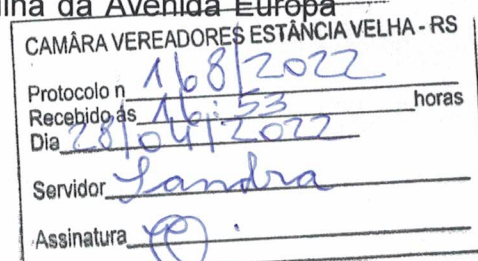 ilha da Avenida Europa
CAMÂRA VEREADORES ESTÂNCIA VELHA - RS
Protocolo n 168/2022
Recebido ás 16:53 horas
Dia 28/04/2022
Servidor Sandra
Assinatura